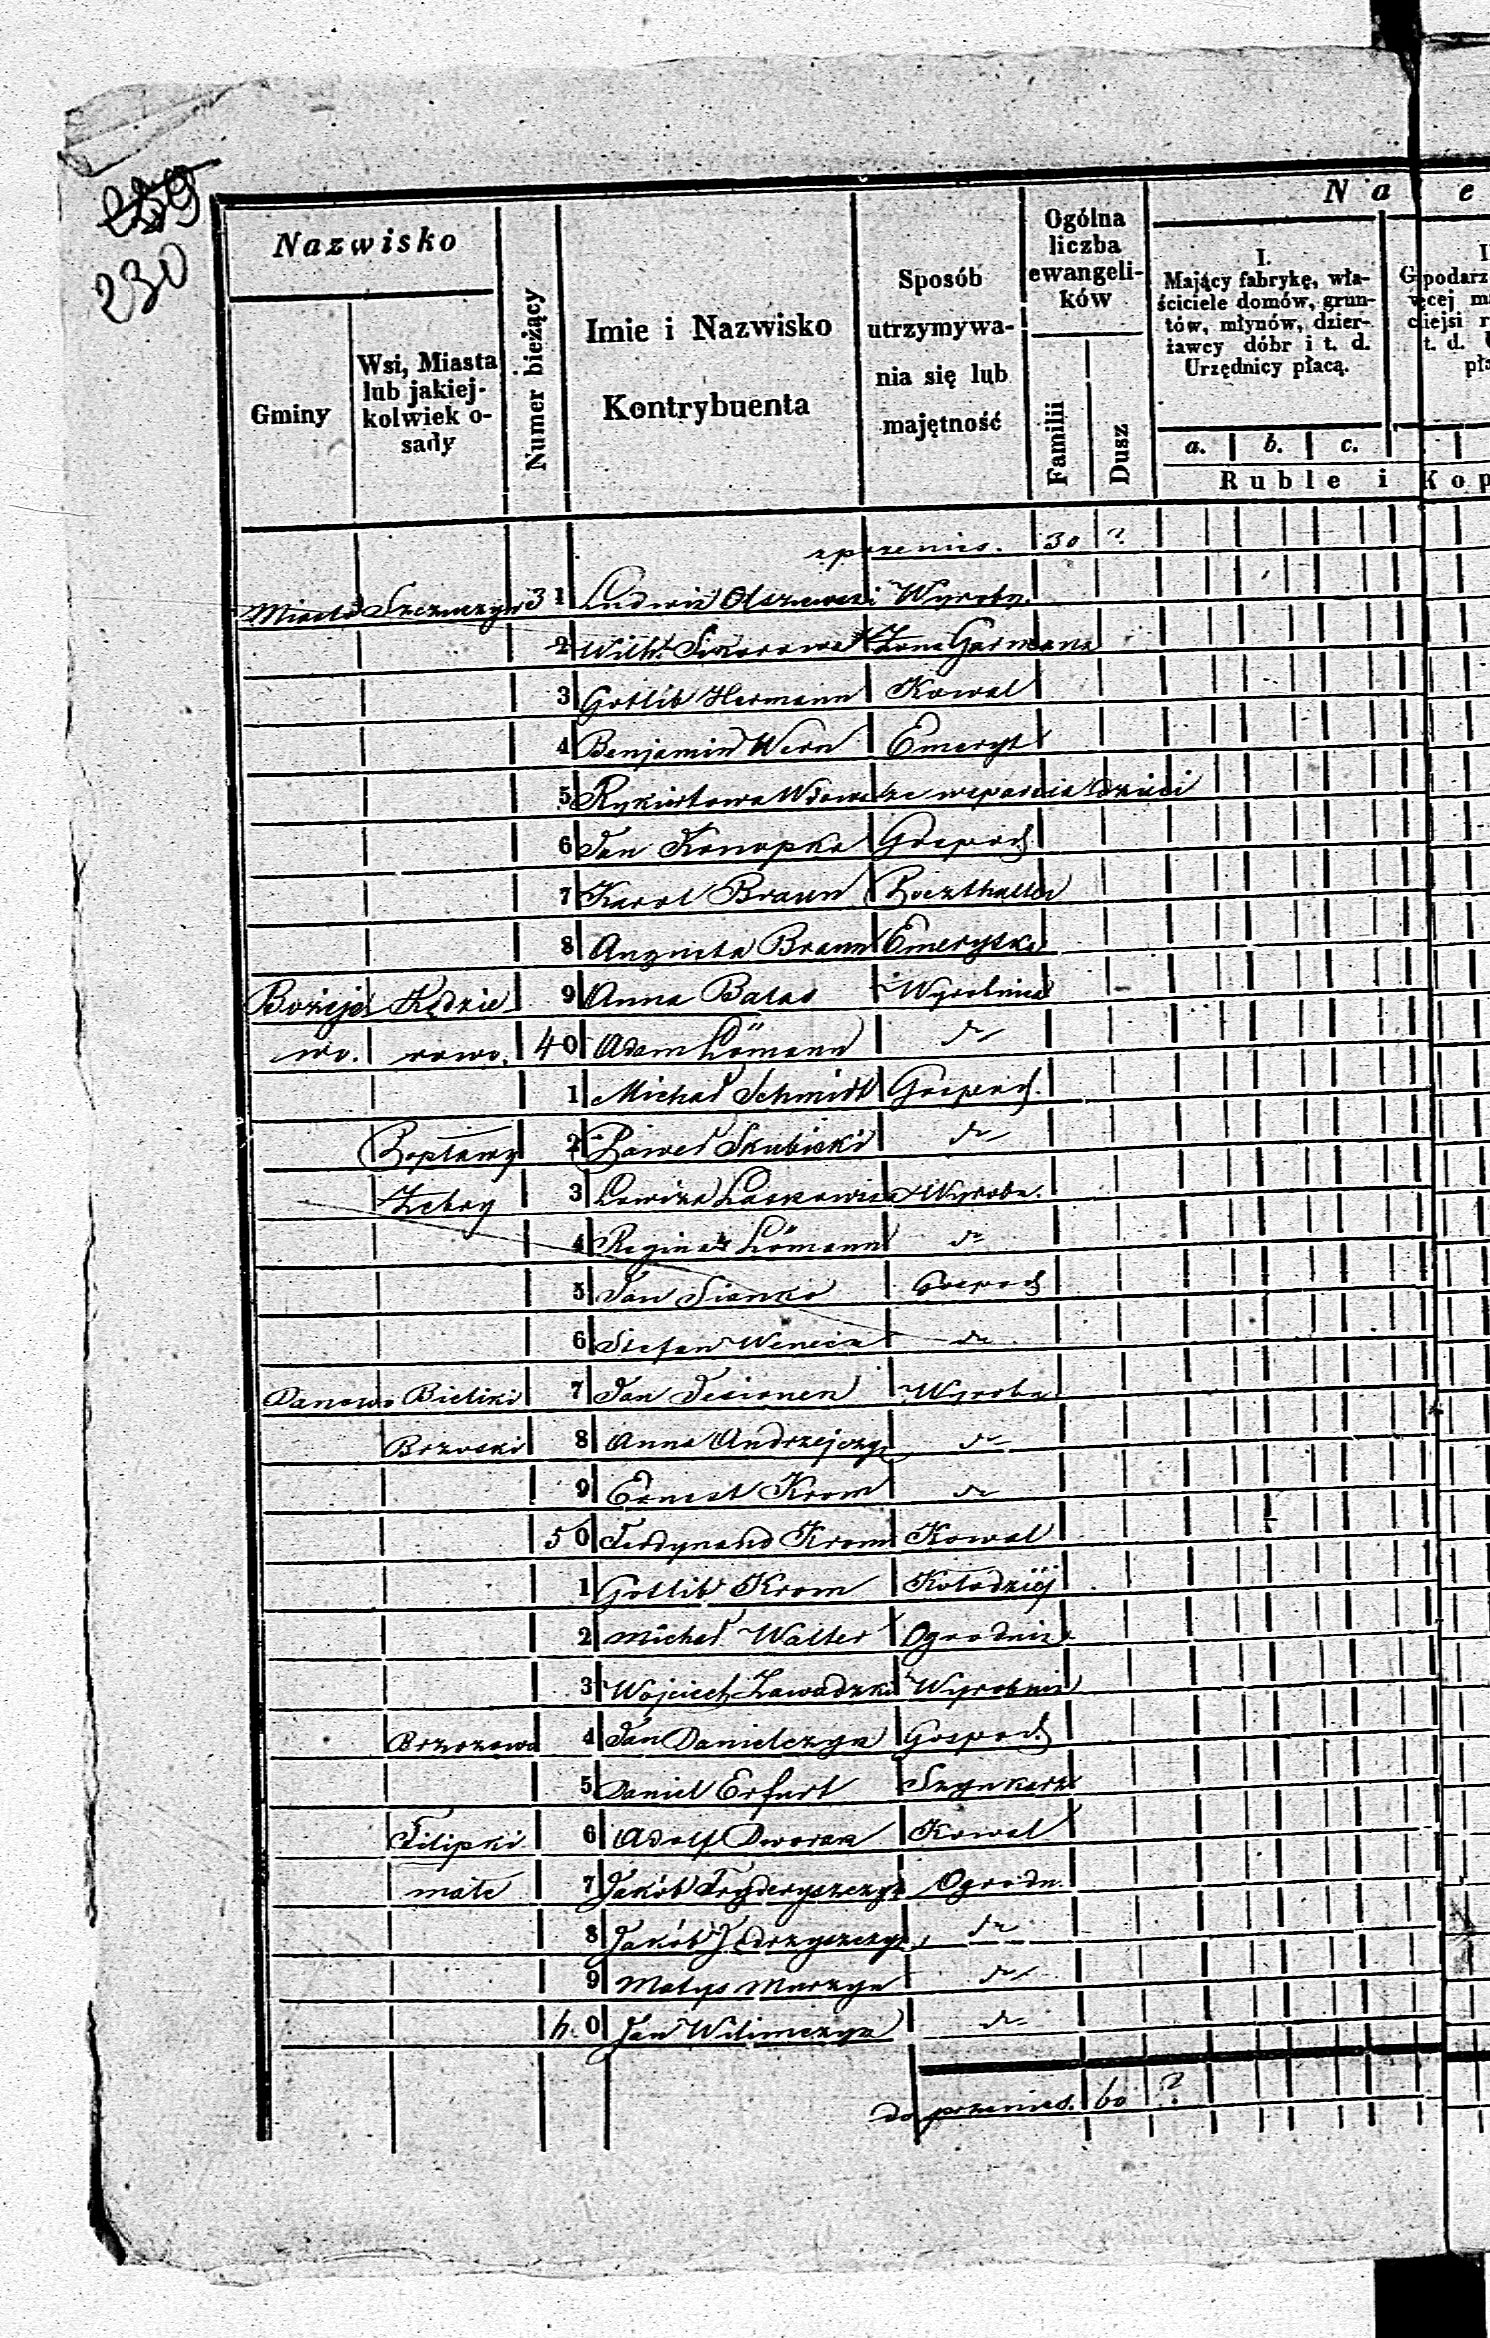 230
Nazwisko
Gminy
Wsi, Miasta
lub jakiej-
kolwiek o-
sady
Numer bieżący
Imie i Nazwisko
Kontrybuenta
Sposób
utrzymywa-
nia się lub
majętność
Ogólna
liczba
ewangeli-
ków
Familii
Dusz
N a e
I.
Mający fabrykę, wła-
ściciele domów, grun-
tów, młynów, dzier-
żawcy dóbr i t. d.
Urzędnicy płacą.
a. b. c.
Ruble i Kop
z przenies. 30 ?
Miasto Szczuczyn 31 Ludwik Olszewski Wyrobn.
2 Wilh. Żona Garncarza
3 Gotlib Hermann Kowal
4 Benjamin Wern Emeryt
5 Rykiertowa Wdowa ze wsparcia dzieci
6 Jan Konopka Gospod.
7 Karol Braun Poczthalter
8 Augusta Braun Emerytka
Bożeje Kędzie 9 Anna Balas Wyrobnica
wo. rowo. 40 Adam Lömann dto
1 Michał Schmidt Gospod.
Popławy 2 Paweł Skubicki dto
Żebry 3 Lowiza Wyrobn.
4 Regina Lömann dto
5 Jan Sianko Gospod.
6 Stefan Wenecia dto
Danowo Bieliki 7 Jan Wyrobn.
Brzoski 8 Anna Andrzejczyk dto
9 Ernest Krom dto
50 Ferdynand Krom Kowal
1 Gotlib Krom Kołodziej
2 Michał Walter Ogrodnik
3 Wojciech Zawadzki Wyrobnik
Brzozowa 4 Jan Danielczyk Gospod.
5 Daniel Erfurt Szynkarz
Filipki 6 Adolf Dworak Kowal
małe 7 Jakób Fryderyszczyk Ogrodn.
8 Jakób Jędrzyszczyk dto
9 Matys Murzyn dto
60 Jan Wilimczyk dto
do przenies. 60 ?